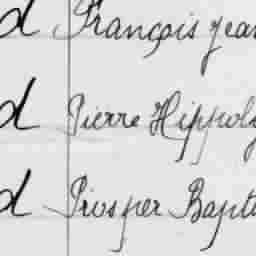 d François Jean
d Pierre Hippoly
d Prosper Bapti